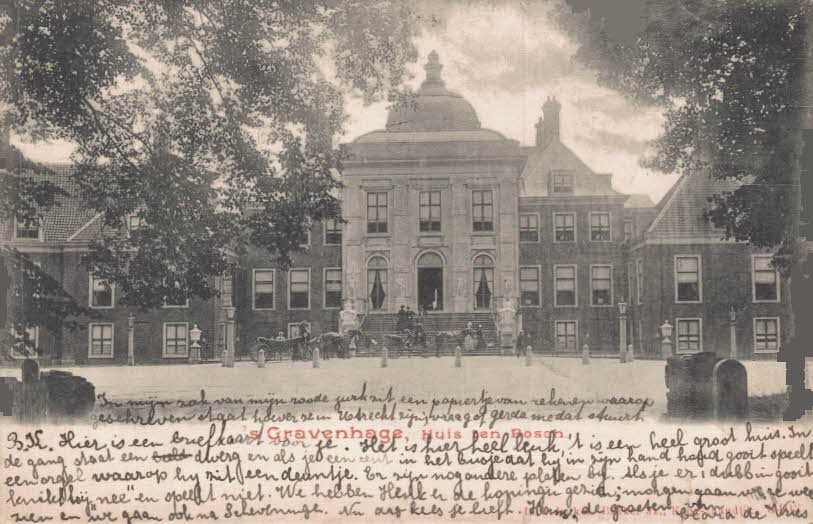 In mijn zak van mijn roode jurk zit een papiertje van rekenen waarop
geschreven staat hoever ze in Utrecht zijn, vraag of gerda me dat stuurt.
's Gravenhage, Huis ten Bosch.
B.K. Hier is een briefkaart voor je. Het is hier heel leuk, 't is een heel groot huis. In
de gang staat een dwerg en als je een cent in het busje dat hij in zijn hand houd gooit speelt
een orgel waarop hij zit een deuntje. Er zijn nog andere platen bij. Als je er 1 dubb. in gooit
hij "nee" en speelt niet. We hebben Henk er de koningin gezien; morgen gaan we ze weer
zien en we gaan ook na Scheveningen. Nu dag kees je lieft. Ham, de groeten van
de Vries